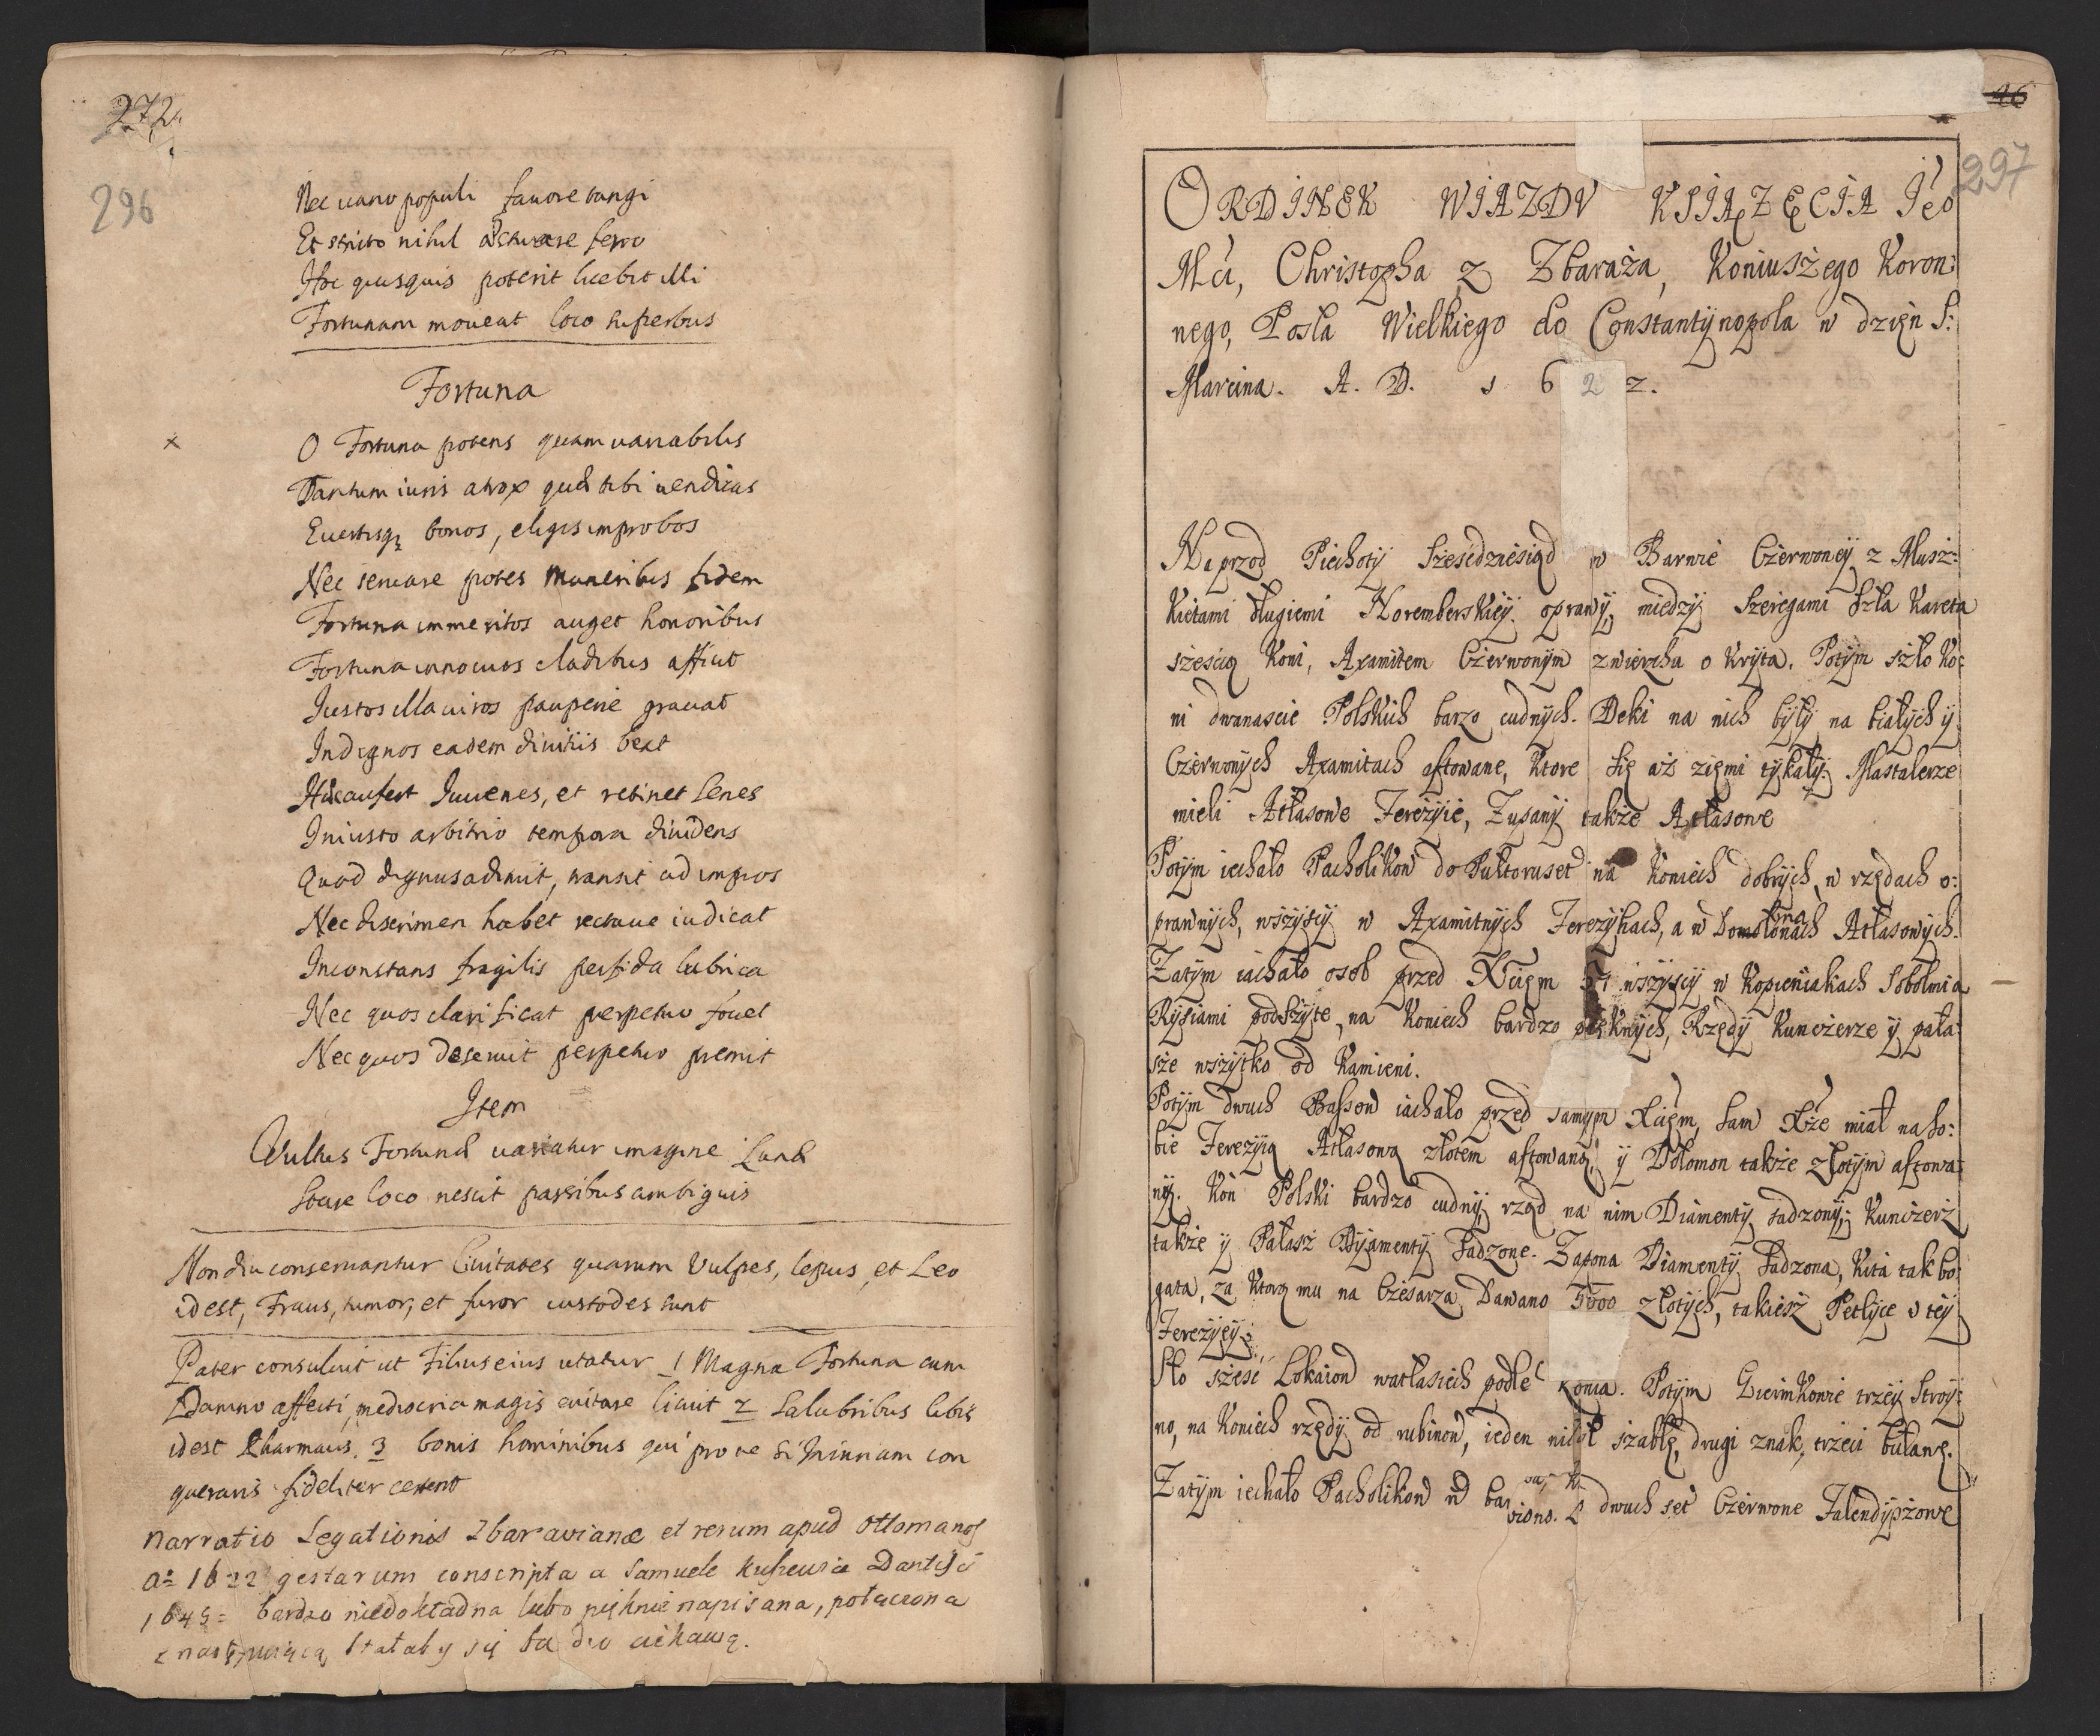 272.
296
Nec uano populi fauore tangi
Et stricto nihil actuare ferro
Hoc quisquis poterit licebit illi
Fortunam moueat loco superbus
Fortuna
x
O Fortuna potens quam uariabilis
Tantum iuris atrox quæ tibi uendicas
Euertisq bonos, eligis improbos
Nec seruare potes muneribus fidem
Fortuna immeritos auget honoribus
Fortuna innocuos cladibus afficit
Iustos illa uiros pauperie grauat
Indignos eadem diuitiis beat
Hæc aufert Iuuenes, et retinet Senes
Iniusto arbitrio tempora diuidens
Quod dignus adimit, transit ad impios
Nec discrimen habet rectaue iudicat
Inconstans fragilis perfida lubrica
Nec quos clarificat perpetuo fouet
Nec quos deseruit perpetuo premit
Item
Vultus Fortunæ uariatur imagine Lunæ
Stare loco nescit passibus ambiguis
Non diu conseruantur Ciuitates quarum Vulpes, lepus, et Leo
idest, Fraus, tumor, et furor custodes sunt
Pater consuluit ut Filius eius utatur 1 Magna Fortuna cum
Damno affecti, mediocria magis euitare licuit 2 Salubribus libis
idest Pharmacis. 3 bonis hominibus qui pro te si
queraris fideliter certent
Narratio Legationis Zbaravianæ et rerum apud Ottomanos
Ao 1622 gestarum conscripta a Samuele Kuszewicz Dantisci
1645 = bardzo niedokładna lubo pięknie napisana, połączona
z następuiącą stałaby się bardzo ciekawą.
46
297
ORDINEK WIAZDV KSIĄZĘCIA Ieo
Mci, Christopha z Zbaraża, Koniuszego Koron:
nego, Posła Wielkiego do Constantynopola w dzięn S:
Marcina. A. D. 1 6 2 2.
Naprzod Piechoty Szescdziesiąd w Barwie Czerwoney z Musz:
kietami długiemi Noremberskiey oprawy, miedzy Szeregami Szła Kareta
szescią Koni, Axamitem Czerwonym zwierzchu okryta. Potym szło Ko:
ni dwanascie Polskich barzo cudnych. Deki na nich były na białych y
Czerwonych Axamitach aftowane, Ktore się aż ziemi tykały. Mastalerze
mieli Atłasowe Ferezyie, Zupany także Atłasowe
Potym iechało Pacholikow do Pułtoruset na Koniech dobrych, w rzędach o:
prawnych, wszyscy w Axamitnych Ferezyhach, a w Dołomanach Atłasowych.
Zatym iachało osob przed Xcięm 37 wszyscy w Kopieniakach Sobolmi a
Rysiami podszyte, na Koniech bardzo pięknych, Rzędy Kunczerze y pała:
sze wszytko od Kamieni.
Potym dwuch Bassow iachało przed samym Xcięm, Sam Xże miał na so:
bie Ferezyią Atłasową złotem aftowaną, y Dołomon także złotym aftowa:
ny. Koń Polski bardzo cudny, rząd na nim Diamenty sadzony, Kunczerz
także y Pałasz Dyjamenty Sadzone. Zapona Diamenty Sadzona, Kita tak bo:
gata, za Ktorą mu na Czesarza Dawano 5000 złotych, takiesz Petlyce v tey
Ferezyey.
Sło szesc Lokaiow watłasiech podle Konia. Potym Giermkowie trzey Stroy:
no, na Koniech rzędy od rubinow, ieden niosł szablę, drugi znak, trzeci buławę.
Zatym iechało Pacholikow w dwuch set Czerwone Falendyszowe